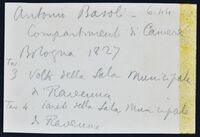 Antonio Basoli - 6.44
Compartimenti di Camere
Bologna 1827
Tav
3 Volta della Sala Municipale
di Ravenna
Tav 4. Pareti della Sala Municipale
di Ravenna